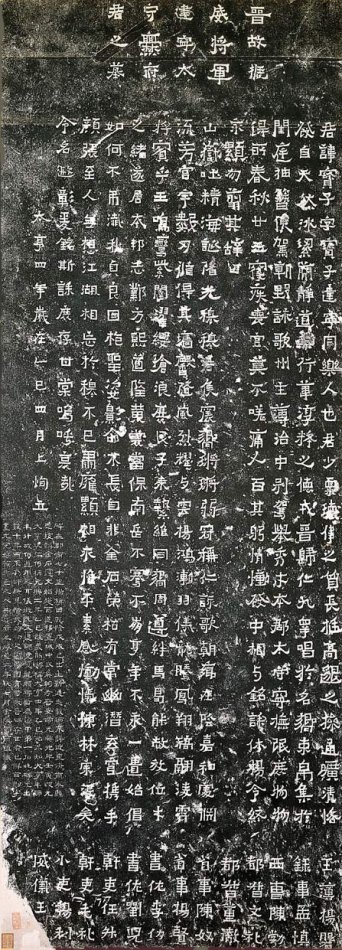 晉故振
威將軍
建寧太
守爨府
君之墓
君諱寶子字寶子建寧同樂人也君少稟瓌偉之質長挺高邈之操通曠清恪
發自天然冰絜簡靜道兼行葦淳粹之德戎晉歸仁九皋唱於名嚮束帛集於
閨庭抽簪俟駕朝野詠歌州主簿治中別駕舉秀才本郡太守寧撫氓庶物物
得所春秋廿五寢疾喪官莫不嗟痛人百其躬情慟發中相與銘誄休揚令終
永顯勿翦其辭曰
山嶽吐精海誕陼光穆穆君侯震嚮鏘鏘弱冠稱仁詠歌朝鄉在陰嘉和處淵
流芳宮宇數仞循得其墻馨隨風烈耀與雲揚鴻漸羽儀龍騰鳳翔矯翮凌霄
將賓乎王鳴鸞紫闥濯纓滄浪庶民子來縶維同嚮周遵絆馬曷能赦放位才
之緒遂居本邦志鄴方熙道隆黃裳當保南岳不騫不崩享年不永一匱始倡
如何不弔殲我貞良回枹聖姿影命不長自非金石榮枯有常幽潛玄穹攜手
顏張至人無想江湖相忘於穆不已肅雍顯相永惟平素感慟忾慷林宗沒矣
令名遐彰爰銘斯誄庶存甘棠嗚呼哀哉
大亨四年歲在乙巳四月上恂立
主簿楊磐
錄事孟慎
西曹陳勃
都督文禮
都督董徹
省事陳奴
省事楊賢
書佐李仂
書佐劉兒
幹吏任升
幹吏毛禮
小吏楊利
威儀王